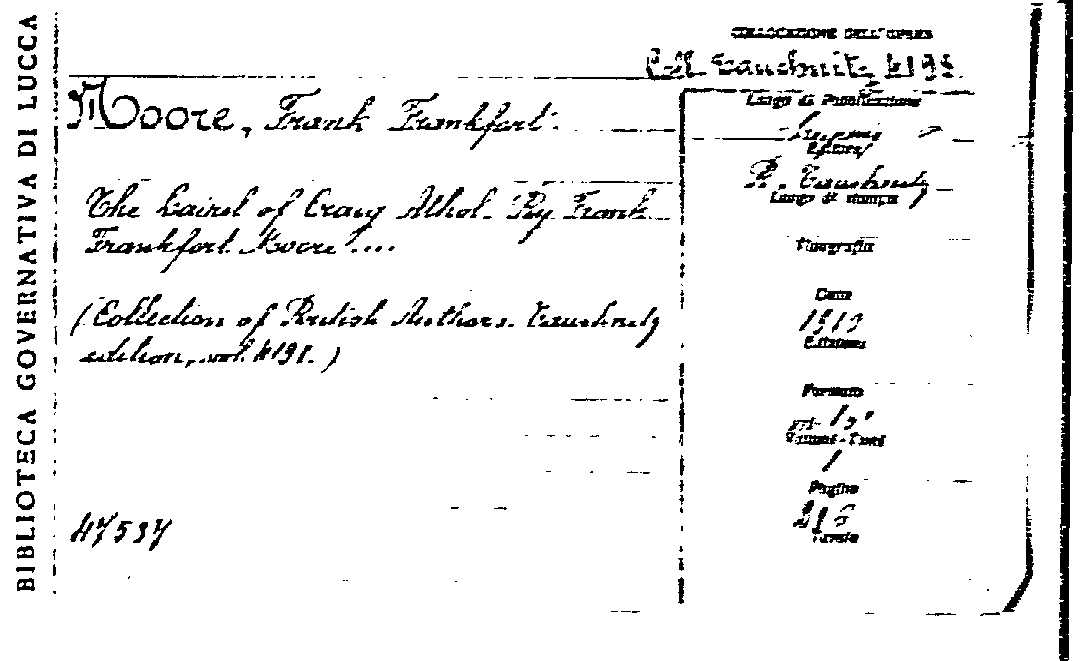 BIBLIOTECA GOVERNATIVA DI LUCCA
COLLOCAZIONE DELL'OPERA
Tauchnitz 4191
Moore, Frank Frankfort.
Luogo di Pubblicazione
Editore
The Laird of Craig Athol. By Frank
Frankfort Moore ....
B. Tauchnitz
Luogo di stampa
Tipografia
(Collection of British Authors. Tauchnitz
edition, vol. 4191.)
Data
Edizione
Formato
in-
Volumi - Tomi
1
Pagine
Tavole
47537